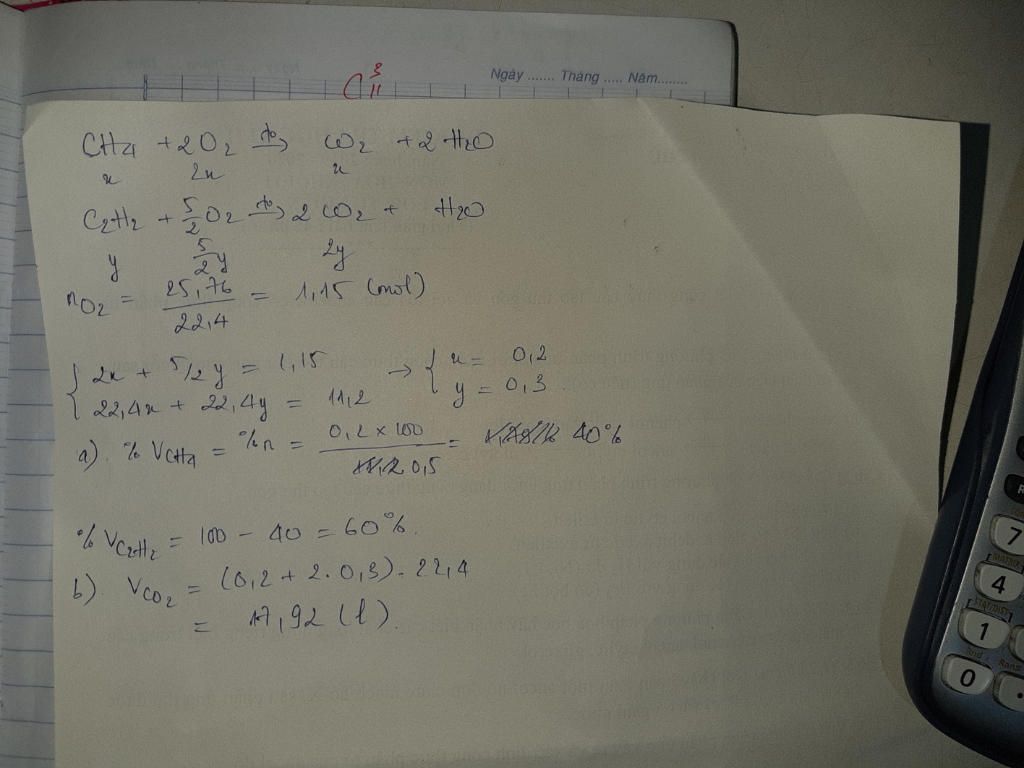 Ngày ....... Tháng ..... Năm........
CH4 + 2O2 →(t°) CO2 + 2H2O
x 2x x
C2H2 + 5/2 O2 →(t°) 2CO2 + H2O
y 5/2y 2y
nO2 = 25,76/22,4 = 1,15 (mol)
{ 2x + 5/2y = 1,15 → { x = 0,2
22,4x + 22,4y = 11,2 y = 0,3
a). % VCH4 = %n = 0,2 x 100 / 0,5 = 40%
% VC2H2 = 100 - 40 = 60%.
b). VCO2 = (0,2 + 2.0,3).22,4
= 17,92 (l).
7
4
1
0